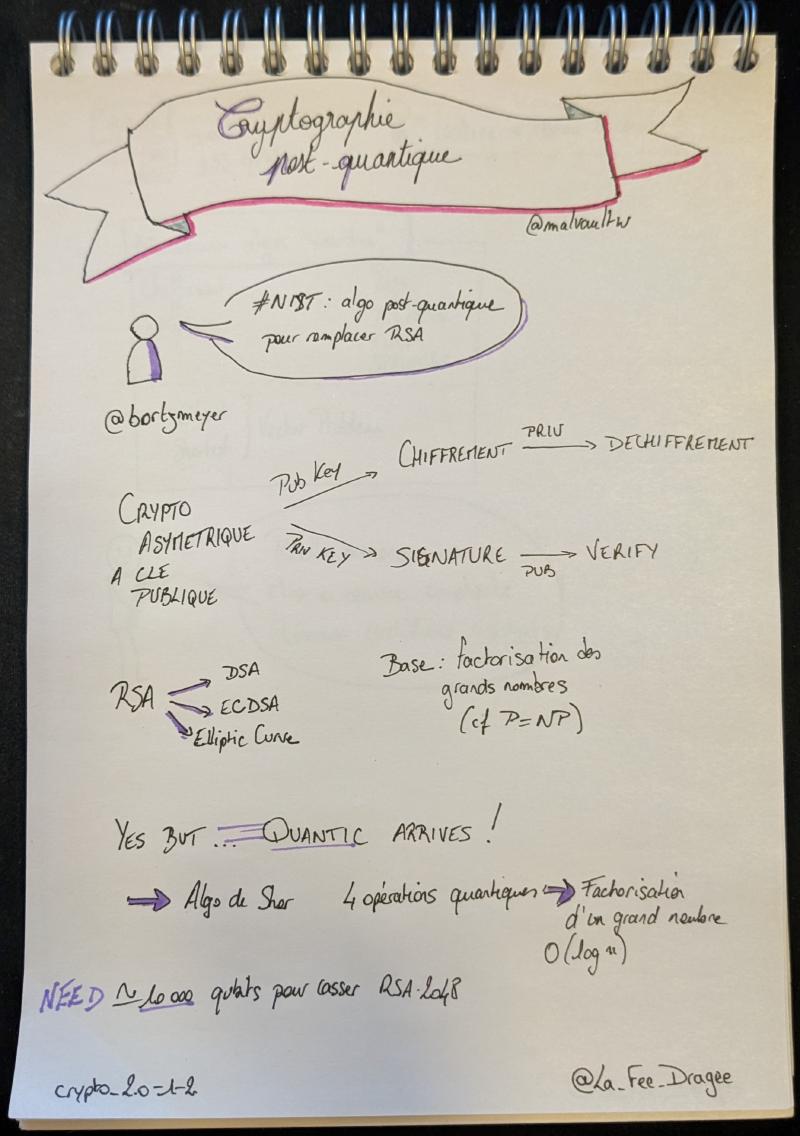 Cryptographie
post-quantique
@malvaultw
#NIST : algo post-quantique
pour remplacer RSA
@bortzmeyer
Pub Key
CHIFFREMENT
PRIV
DECHIFFREMENT
CRYPTO
ASYMETRIQUE
A CLE
PUBLIQUE
PRIV KEY
SIGNATURE
PUB
VERIFY
RSA
DSA
ECDSA
Elliptic Curve
Base : factorisation des
grands nombres
(cf P=NP)
YES BUT ... QUANTIC ARRIVES !
Algo de Shor 4 opérations quantiques Factorisation
d'un grand nombre
O(log n)
NEED ~ 10 000 qubits pour casser RSA-2048
crypto_2.0-1-2
@La_Fee_Dragee